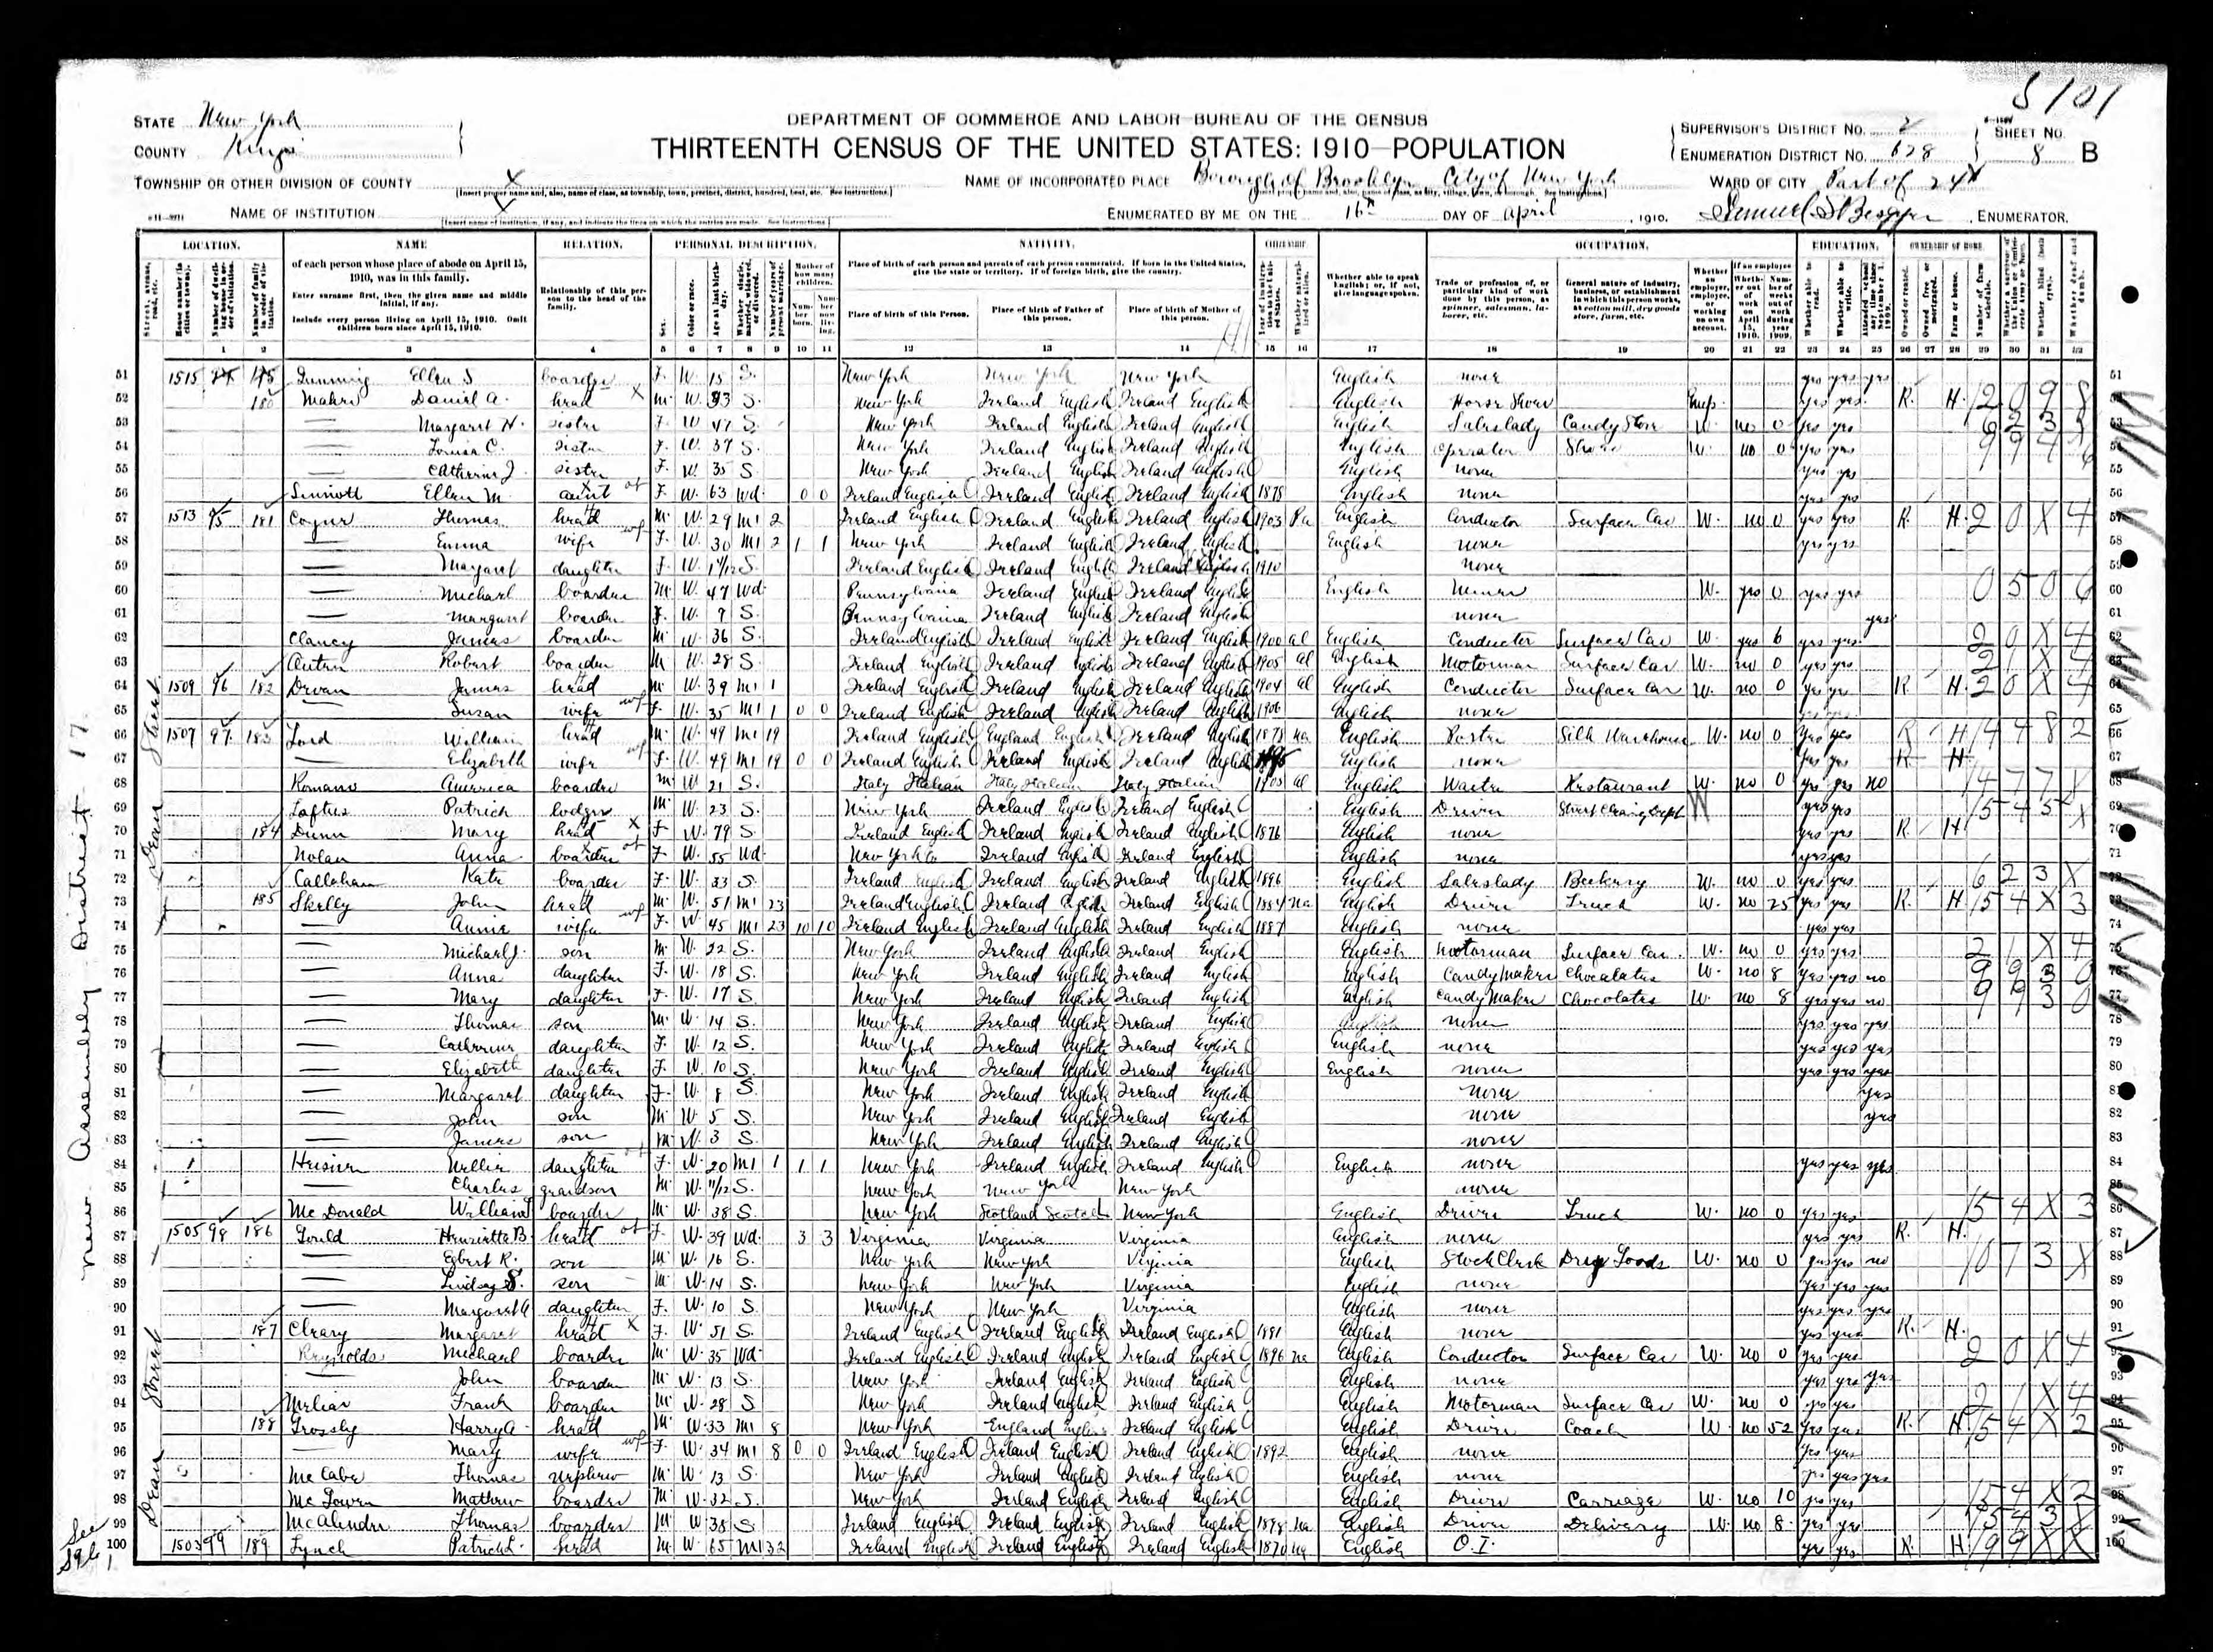 5101
STATE New York
DEPARTMENT OF COMMERCE AND LABOR—BUREAU OF THE CENSUS
SUPERVISOR'S DISTRICT NO. 2
SHEET NO.
COUNTY Kings
THIRTEENTH CENSUS OF THE UNITED STATES: 1910—POPULATION
ENUMERATION DISTRICT NO. 628
8 B
TOWNSHIP OR OTHER DIVISION OF COUNTY X
NAME OF INCORPORATED PLACE Borough of Brooklyn City of New York
WARD OF CITY Part of 24
NAME OF INSTITUTION X
ENUMERATED BY ME ON THE 16th DAY OF April, 1910. Samuel S ENUMERATOR.
LOCATION. NAME RELATION. PERSONAL DESCRIPTION. NATIVITY. CITIZENSHIP. OCCUPATION. EDUCATION. OWNERSHIP OF HOME.
of each person whose place of abode on April 15, 1910, was in this family.
Enter surname first, then the given name and middle initial, if any.
Include every person living on April 15, 1910. Omit children born since April 15, 1910.
Relationship of this person to the head of the family.
Place of birth of each person and parents of each person enumerated. If born in the United States, give the state or territory. If of foreign birth, give the country.
Place of birth of this Person. Place of birth of Father of this person. Place of birth of Mother of this person.
Whether able to speak English; or, if not, give language spoken.
Trade or profession of, or particular kind of work done by this person, as spinner, salesman, laborer, etc.
General nature of industry, business, or establishment in which this person works, as cotton mill, dry goods store, farm, etc.
1 2 3 4 5 6 7 8 9 10 11 12 13 14 15 16 17 18 19 20 21 22 23 24 25 26 27 28 29 30 31 32
51 1515 Ellen S boarder F. W. 15 S. New York New York New York English none yes yes yes
52 180 Daniel A. head M. W. S. New York Ireland English Ireland English English Horse Shoer yes yes R. H.
53 Margaret H. sister F. W. 47 S. New York Ireland English Ireland English English Saleslady Candy Store W. no 0 yes yes
54 Louisa C. sister F. W. 37 S. New York Ireland English Ireland English English operator W. no 0 yes yes
55 Catherine J. sister F. W. 35 S. New York Ireland English Ireland English English none yes yes
56 Sinnott Ellen M. aunt F. W. 63 Wd. 0 0 Ireland English Ireland English Ireland English 1878 English none yes yes
57 1513 95 181 Coyne Thomas head M. W. 29 M1 2 Ireland English Ireland English Ireland English 1903 Pa English Conductor Surface Car W. no 0 yes yes R. H. 2 0 X 4
58 Emma wife F. W. 30 M1 2 1 1 New York Ireland English Ireland English English none yes yes
59 Margaret daughter F. W. S. Ireland English Ireland English Ireland English 1910 none
60 Michael boarder M. W. 47 Wd. Pennsylvania Ireland English Ireland English English Miner W. yes 0 yes yes 0 5 0 6
61 Margaret boarder F. W. 9 S. Pennsylvania Ireland English Ireland English none yes
62 Clancy James boarder M. W. 36 S. Ireland English Ireland English Ireland English 1900 al English Conductor Surface Car W. yes 6 yes yes 2 0 X 4
63 Robert boarder M W. 28 S. Ireland English Ireland English Ireland English 1905 al English Motorman Surface Car W. no 0 yes yes 2 1 X 4
64 1509 96 182 James head M. W. 39 M1 1 Ireland English Ireland English Ireland English 1904 al English Conductor Surface Car W. no 0 yes yes R. H. 2 0 X 4
65 Susan wife F. W. 35 M1 1 0 0 Ireland English Ireland English Ireland English 1906 English none yes yes
66 1507 97 183 Lord William head M. W. 49 M1 19 Ireland English England English Ireland English 1878 na English Porter Silk Warehouse W. no 0 yes yes R H 4 4 8 2
67 Elizabeth wife F. W. 49 M1 19 0 0 Ireland English Ireland English Ireland English English none yes yes
68 Romano America boarder M W 21 S. Italy Italian Italy Italian Italy Italian 1905 al English Waiter Restaurant W. no 0 yes yes no
69 Loftus Patrick lodger M. W. 23 S. New York Ireland English Ireland English English Driver Street Cleaning Dept W yes yes
70 184 Dunn Mary head F W. 79 S. Ireland English Ireland English Ireland English 1876 English none yes yes R. H
71 Nolan Anna boarder F. W. 55 Wd. New York Ireland English Ireland English English none yes yes
72 Callahan Kate boarder F. W. 33 S. Ireland English Ireland English Ireland English 1896 English Saleslady Beckery W. no 0 yes yes 6 2 3 X
73 185 Skelly John head M. W. 51 M1 23 Ireland English Ireland English Ireland English 1884 na English Driver Truck W. no 25 yes yes R. H 5 4 X 3
74 Annie wife F. W. 45 M1 23 10 10 Ireland English Ireland English Ireland English 1887 English none yes yes
75 Michael J. son M. W. 22 S. New York Ireland English Ireland English English Motorman Surface Car W. no 0 yes yes 2 1 X 4
76 Anna daughter F. W. 18 S. New York Ireland English Ireland English English Candy Maker Chocolates W. no 8 yes yes no 9 9 3 0
77 Mary daughter F. W. 17 S. New York Ireland English Ireland English English Candy Maker Chocolates W. no 8 yes yes no 9 9 3 0
78 Thomas son M. W. 14 S. New York Ireland English Ireland English English none yes yes yes
79 Catherine daughter F. W. 12 S. New York Ireland English Ireland English English none yes yes yes
80 Elizabeth daughter F. W. 10 S. New York Ireland English Ireland English English none yes yes yes
81 Margaret daughter F. W. 8 S. New York Ireland English Ireland English none yes
82 John son M W. 5 S. New York Ireland English Ireland English none yes
83 James son M. W. 3 S. New York Ireland English Ireland English none
84 Nellie daughter F. W. 20 M1 1 1 1 New York Ireland English Ireland English English none yes yes yes
85 Charles grandson M. W. 11/12 S. New York New York New York none
86 Mc Donald William J boarder M. W. 38 S. New York Scotland Scotch New York English Driver Truck W. no 0 yes yes 5 4 X 3
87 1505 98 186 Gould Henrietta B. head F. W. 39 Wd. 3 3 Virginia Virginia Virginia English none yes yes R. H.
88 Egbert R. son M. W. 16 S. New York New York Virginia English Stock Clerk Dry Goods W. no 0 yes yes no
89 Lindsay S. son M. W. 14 S. New York New York Virginia English none yes yes yes
90 Margaret A daughter F. W. 10 S. New York New York Virginia English none yes yes yes
91 187 Cleary Margaret head F. W. 51 S. Ireland English Ireland English Ireland English 1891 English none yes yes R. H.
92 Reynolds Michael boarder M. W. 35 Wd. Ireland English Ireland English Ireland English 1896 na English Conductor Surface Car W. no 0 yes yes 2 0 X 4
93 John boarder M. W. 13 S. New York Ireland English Ireland English English none yes yes yes
94 Frank boarder M. W. 28 S New York Ireland English Ireland English English Motorman Surface Car W. no 0 yes yes 2 1 X 4
95 188 Harry A. head M. W. 33 M1 8 New York England English Ireland English English Driver Coach W. no 52 yes yes R. H. 5 4 X 2
96 Mary wife F. W. 34 M1 8 0 0 Ireland English Ireland English Ireland English 1892 English none yes yes
97 Mc Cabe Thomas nephew M. W. 13 S. New York Ireland English Ireland English English none yes yes yes
98 Mc Gowen Mathew boarder M. W. 32 S. New York Ireland English Ireland English English Driver Carriage W. no 10 yes yes 5 4 X 2
99 Thomas boarder M W 38 S. Ireland English Ireland English Ireland English 1898 na English Driver Delivery W. no 8 yes yes
100 1503 99 189 Lynch Patrick head M. W. 65 M1 32 Ireland English Ireland English Ireland English 1870 na English O.I. yes yes R. H
Dean Street
Dean Street
New Assembly District 17.